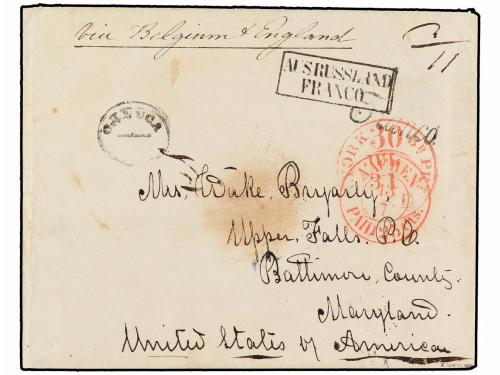 via Belgium & England
11
AUS RUSSLAND
FRANCO
Franco.
30
PAID
Mrs. Wake Bryarly,
Upper Falls. P.O.
Baltimore County
Maryland.
United States of American